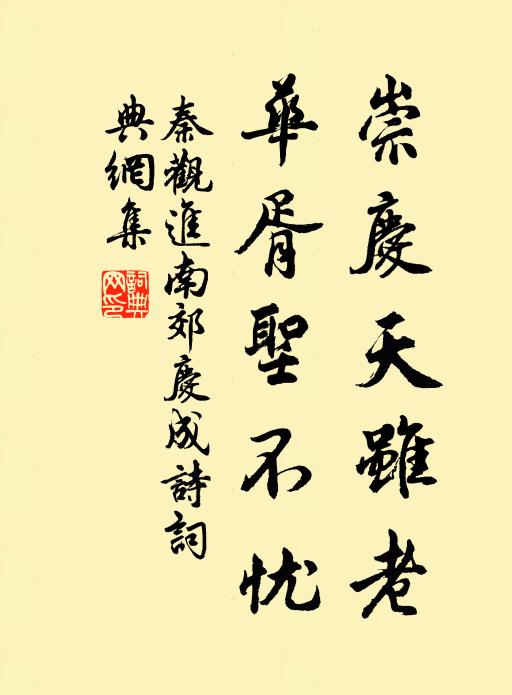 崇慶天雖老
華胥聖不忧
秦觀進南郊慶成詩詞
典網集
詞典网印